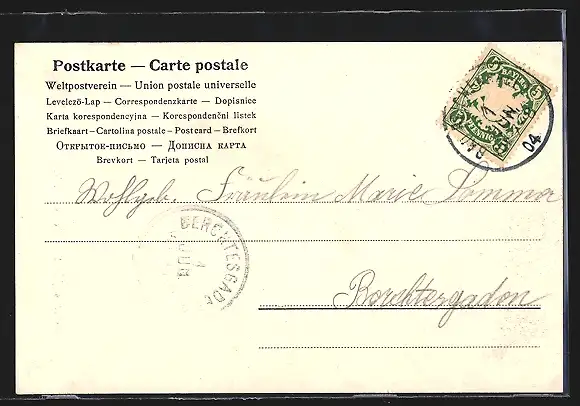 Postkarte — Carte postale
Weltpostverein — Union postale universelle
Levelező-Lap — Correspondenzkarte — Dopisnice
Karta korespondencyjna — Korespondenčni listek
Briefkaart – Cartolina postale – Postcard – Brefkort
Открытое-письмо — Дописна карта
Brevkort — Tarjeta postal
BAYERN
5 5
PFENNIG
04
Wohlgeb. Fräulein Marie Sommer
BERCHTESGADE
1
JUN
Berchtesgaden